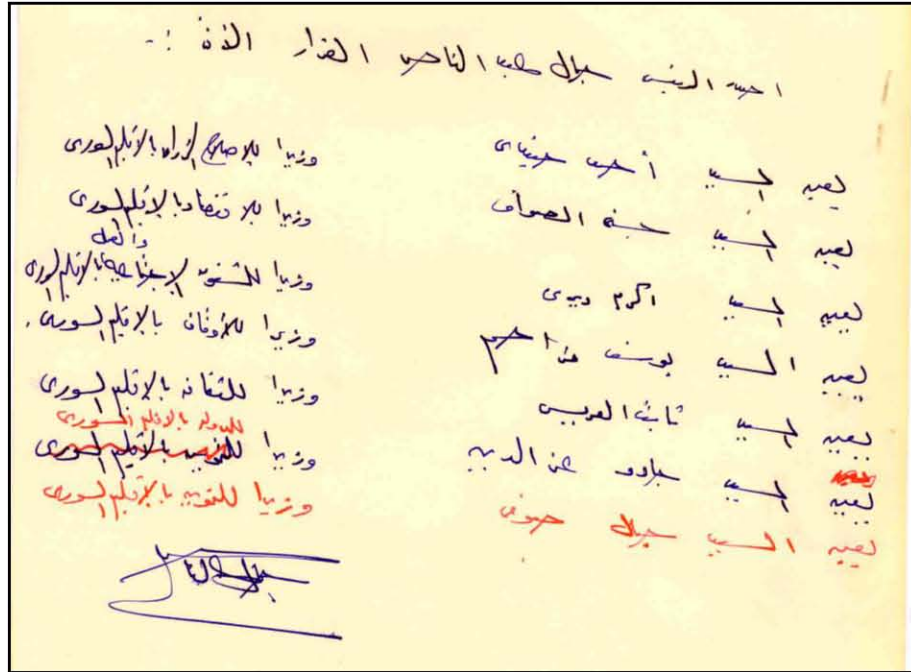 اصدر الرئيس جمال عبد الناصر القرار الآتى :-
يعين السيد أحمد حنيدى وزيرا للإصلاح الزراعى بالإقليم السورى
يعين السيد حسنه الصواف وزيرا للاقتصاد بالإقليم السورى
والعمل
يعين السيد اكرم ديرى وزيرا للشئون الاجتماعية بالإقليم السورى
يعين السيد يوسف مزاحم وزيرا للأوقاف بالإقليم السورى .
يعين السيد ثابت العريس وزيرا للثقافة بالإقليم السورى
للدولة بالاقليم السورى
يعين السيد جادو عز الدين وزيرا للتموين بالإقليم السورى
يعين السيد جمال صوفى وزيرا للتموين بالإقليم السورى